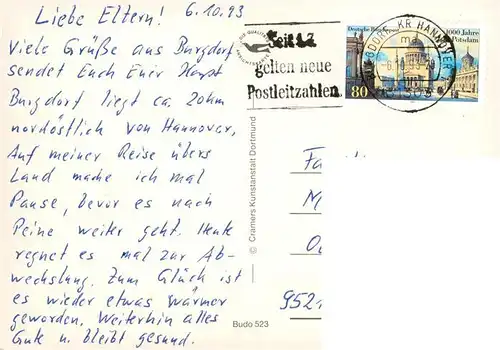 Liebe Eltern! 6.10.93
Viele Grüße aus Burgdorf
sendet Euch Euer
Burgdorf liegt ca. 20km
nordöstlich von Hannover.
Auf meiner Reise übers
Land mache ich mal
Pause, bevor es nach
Peine weiter geht. Heute
regnet es mal zur Ab-
wechslung. Zum Glück ist
es wieder etwas wärmer
geworden. Weiterhin alles
Gute u. bleibt gesund.
Seit 1.7.
gelten neue
Postleitzahlen.
Deutsche
1000 Jahre
Potsdam
80
KR HANNOVER
© Cramers Kunstanstalt Dortmund
Budo 523
952